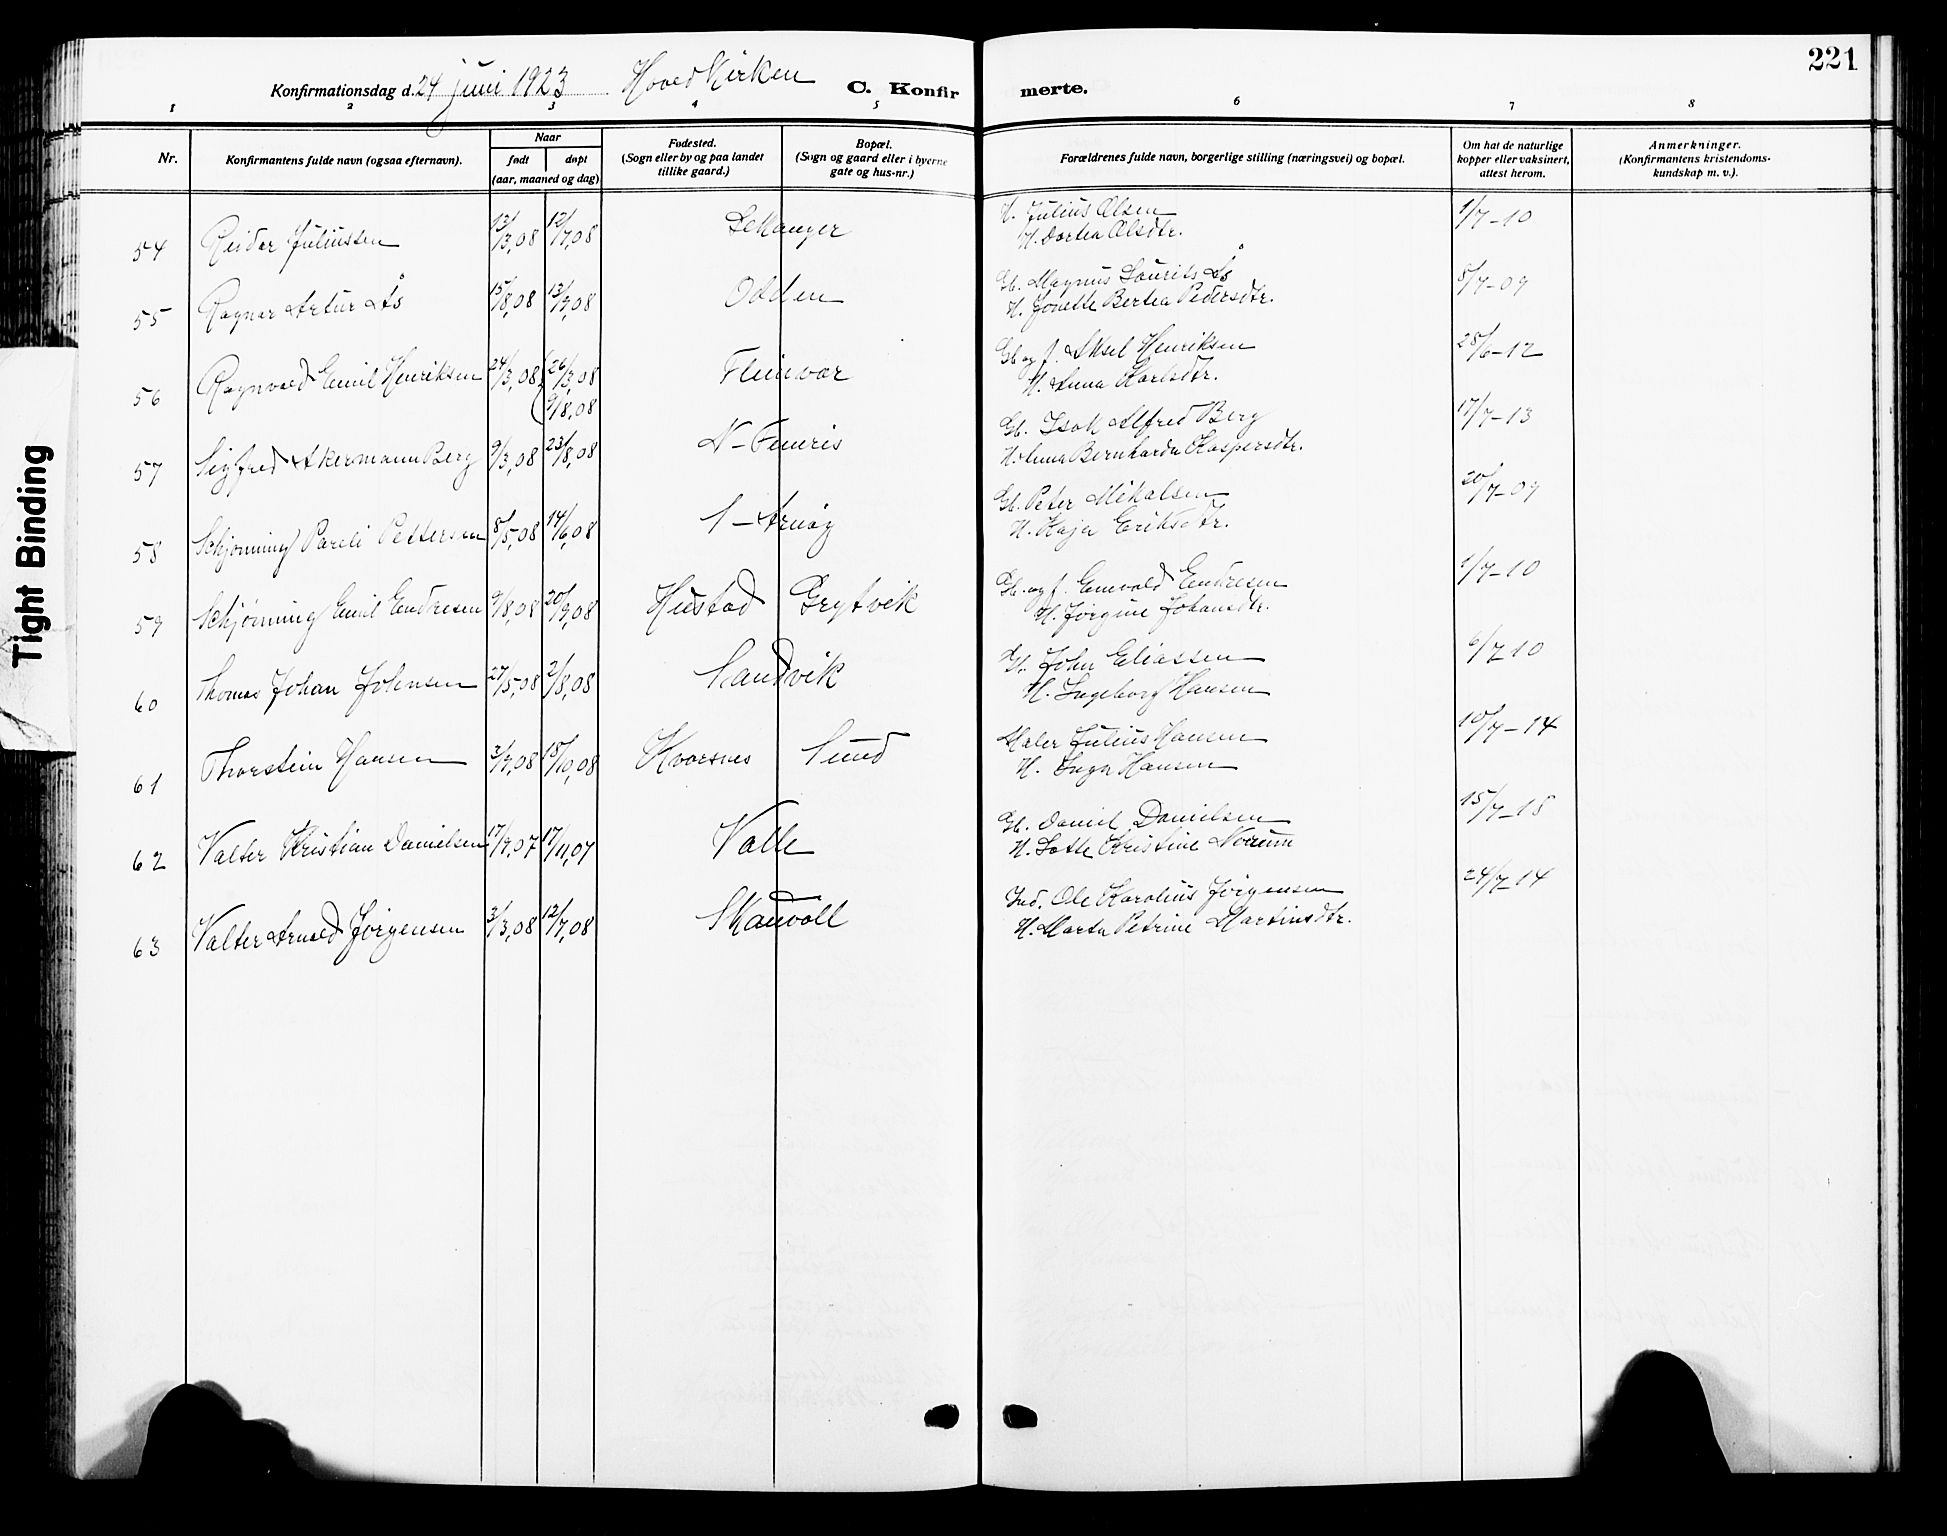 221
Konfirmationsdag d. 24 juni 1923 Hovedkirken C. Konfirmerte.
1 2 3 4 5 6 7 8
Nr. Konfirmantens fulde navn (ogsaa efternavn). Naar født døpt (aar, maaned og dag) Fødested. (Sogn eller by og paa landet tillike gaard.) Bopæl. (Sogn og gaard eller i byerne gate og hus-nr.) Forældrenes fulde navn, borgerlige stilling (næringsvei) og bopæl. Om hat de naturlige kopper eller vaksinert, attest herom. Anmerkninger. (Konfirmantens kristendomskundskap m. v.).
54 Reidar Juliussen 13/3,08 12/7,08 Lekanger H. Julius Olsen 1/7-10
H. Dortea Olsdtr.
55 Ragnar Artur Ås 15/8,08 13/9,08 Odden Gb. Magnus Laurits Ås 8/7-09
H. Jonette Bertea Pedersdtr.
56 Ragnvald Emil Henriksen 24/3,08 26/3,08 Fleinvær Gb og f. Aksel Henriksen 28/6-12
9/8,08 H. Anna Karlsdtr.
57 Sigfred Akermann Berg 9/3,08 23/8,08 N-Femris Gb. Isak Alfred Berg 17/7-13
H. Anna Bernharda Kaspersdtr.
58 Schjønning Pareli Pettersen 8/5,08 14/6,08 S-Arnøy Gb. Peter Mikalsen 20/7-09
H. Kaja Eriksdtr.
59 Schjønning Emil Endresen 9/8,08 20/9,08 Hustad Grytvik Gb. og f. Emvald Endresen 1/7-10
H. Jørgine Johansdtr.
60 Thomas Johan Johnsen 27/5,08 2/8,08 Sandvik Gb. John Eliassen 6/7 10
H. Ingeborg Hansen
61 Thorstein Hansen 3/9,08 18/10,08 Kvarsnes Sund Maler Julius Hansen 10/7-14
H. Inga Hansen
62 Valter Kristian Danielsen 17/9,07 17/11,07 Valle Gb. Daniel Danielsen 15/7-18
H. Lotte Kristine Norum
63 Valter Arnold Jørgensen 3/3,08 12/7,08 Skauvoll Ind. Ole Karolius Jørgensen 24/7-14
H. Marta Petrine Martinsdtr.
Tight Binding